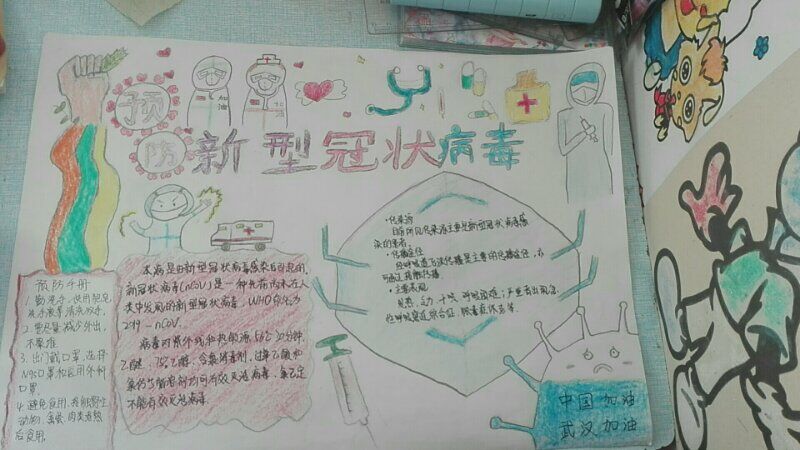 预
防 新型冠状病毒
加油
预防手册
1. 勤洗手,使用肥皂
洗手液等 清洗双手.
2. 尽量减少外出,
不聚堆
3. 出门戴口罩,选择
N95口罩和医用外科
口罩
4. 避免食用
动物
后食用.
本病是由新型冠状病毒感染后引起的,
新冠状病毒(nCoV)是一种先前尚未在人
类中发现的新型冠状病毒. WHO命名为
2019-nCOV.
病毒对紫外线和热敏源,56℃30分钟.
乙醚.75%乙醇,含氯消毒剂,过氧乙酸和
氯仿等脂溶剂均可有效灭活病毒,氯己定
不能有效灭活病毒
·传染源
目前所见传染源主要是新型冠状病毒感
染的患者
·传播途径
经呼吸道飞沫传播是主要的传播途径,亦
可通过接触传播
·主要表现
发热,乏力,干咳,呼吸困难;严重者出现急
性呼吸窘迫综合征,脓毒症休克等.
中国 加油
武汉加油